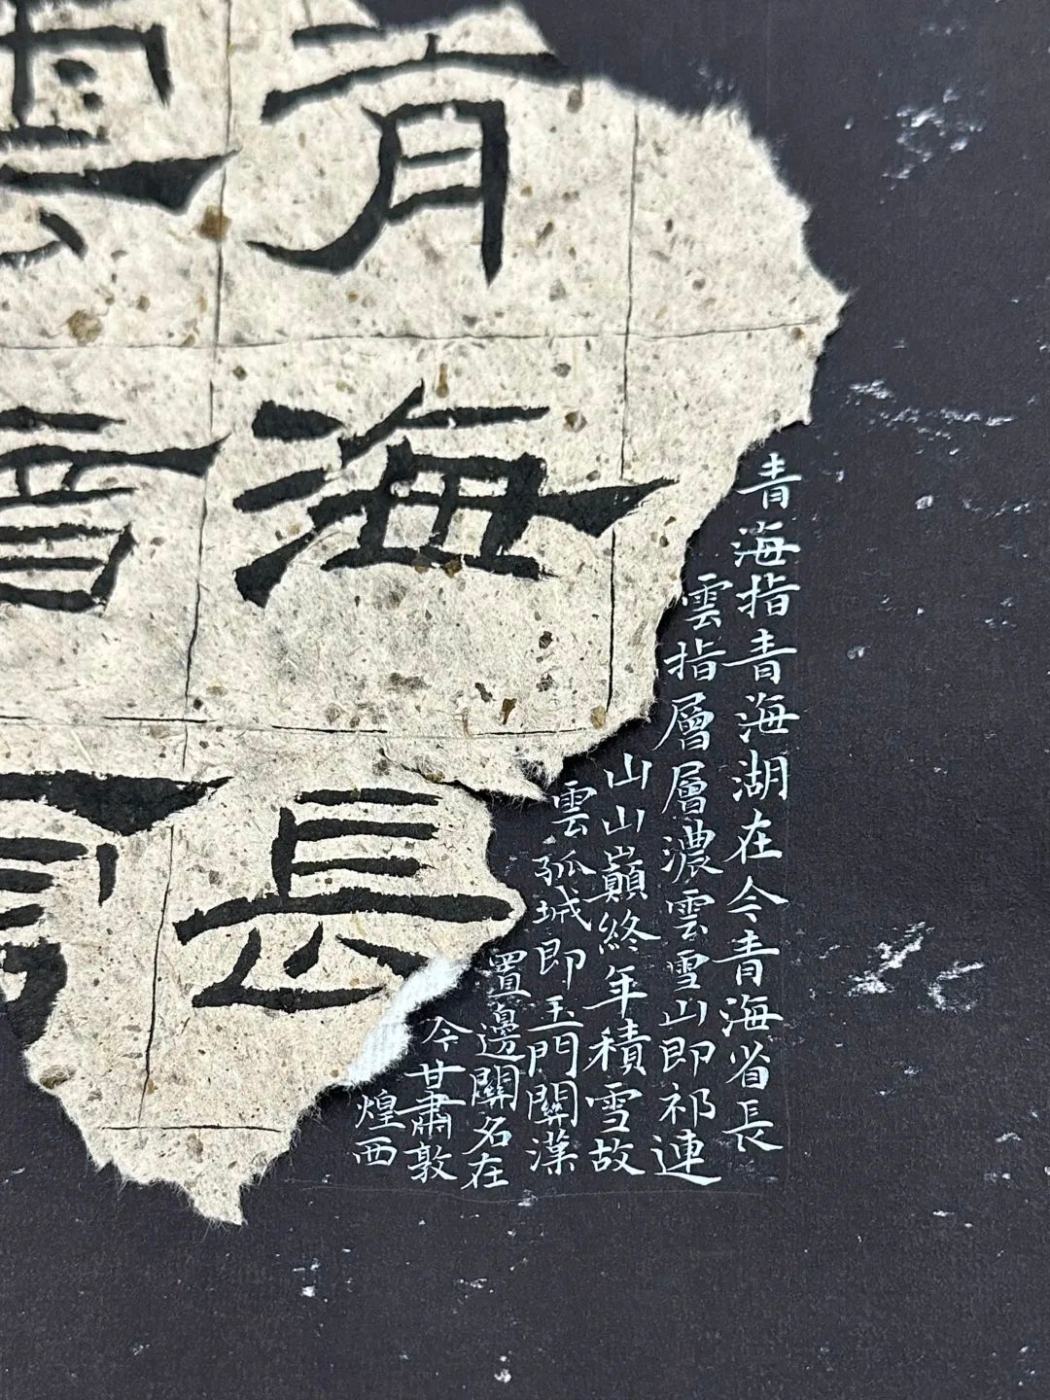 青海長
雲暗
青海指青海湖在今青海省長
雲指層層濃雲雪山即祁連
山山巔終年積雪故
雲孤城即玉門關漢
置邊關名在
今甘肅敦
煌西